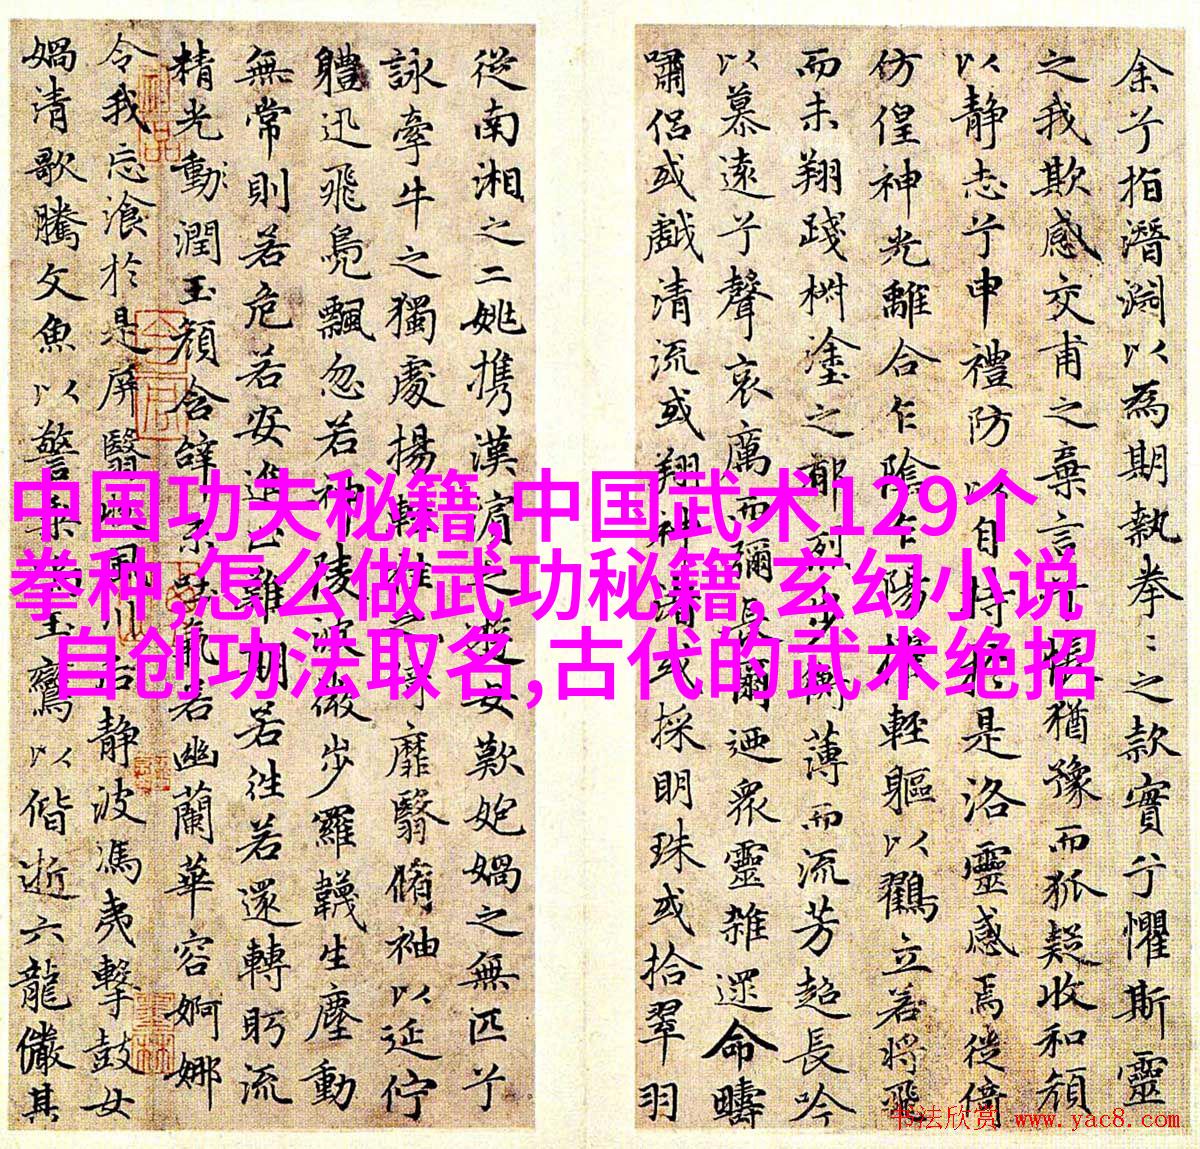 余兮指潛淵以為期執拳〻之款實兮懼斯靈
之我欺感交甫之棄言兮悵猶豫而狐疑收和顔
以静志兮申禮防以自持於是洛靈感焉徙倚
仿偟神光離合乍陰乍陽擢輕軀以鶴立若將飛
而未翔踐椒塗之郁烈步蘅薄而流芳超長吟
以慕遠兮聲哀厲而彌長爾迺衆靈雜遝命疇
嘯侣或戲清流或翔神渚或採明珠或拾翠羽
從南湘之二姚携漢濱之遊女歎匏媧之無匹兮
詠牽牛之獨處揚輕袿之猗靡翳脩袖以延佇
體迅飛鳧飄忽若神陵波微步羅韤生塵動
無常則若危若安進止難期若往若還轉眄流
精光動潤玉顔含辭未吐氣若幽蘭華容婀娜
令我忘飡於是屏翳收風川后静波馮夷擊鼓女
媧清歌騰文魚以警乘鳴玉鸞以偕逝六龍儼其
中国功夫秘籍,中国武术129个
拳种,怎么做武功秘籍,玄幻小说
自创功法取名,古代的武术绝招
书法欣赏 www.yac8.com